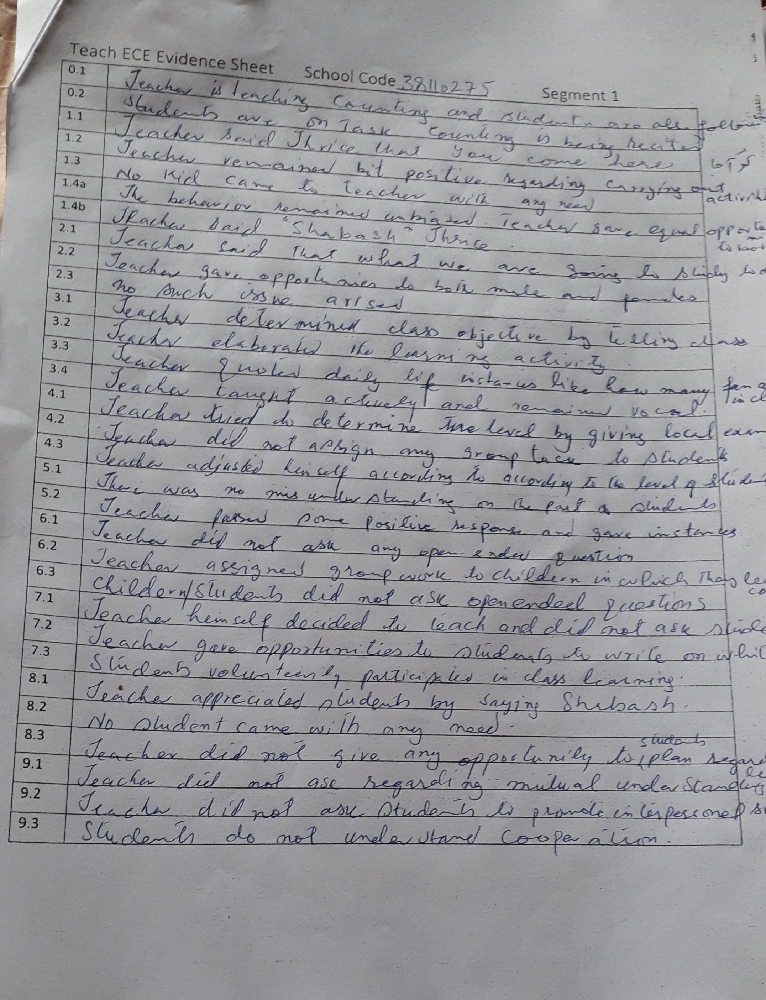 Teach ECE Evidence Sheet School Code 38110275 Segment 1
0.1 Teacher is teaching counting and students are also follow
0.2 Students are on Task counting is being recited
1.1 Teacher said Thrice that you come here
1.2 Teacher remained bit positive regarding carrying out activit
1.3 No kid came to teacher with any need
1.4a The behavior remained unbiased. Teacher gave equal opport
1.4b Teacher said "Shabash" Thrice
2.1 Teacher said that what we are going to study tod
2.2 Teacher gave opportunies to both male and females
2.3 no such issue arised
3.1 Teacher determined class objective by telling class
3.2 Teacher elaborated the learning activity.
3.3 Teacher quoted daily life instances like how many fan a in cl
3.4 Teacher taught actively and remained vocal.
4.1 Teacher tried to determine the level by giving local exam
4.2 Teacher did not assign any group task to students
4.3 Teacher adjusted himself according to according to the level of stude
5.1 There was no misunderstanding on the part of students
5.2 Teacher passed some positive response and gave instances
6.1 Teacher did not ask any open ended question
6.2 Teacher assigned group work to childern in which they le co
6.3 Childern/students did not ask openended questions
7.1 Teacher heimself decided to teach and did not ask stude
7.2 Teacher gave opportunities to students to write on whit
7.3 Students volunteerily participated in class learning.
8.1 Teacher appreciated students by saying Shabash.
8.2 No student came with any need.
8.3 Teacher did not give any opportunity to students plan regar le
9.1 Teacher did not ask regarding mutual understanding
9.2 Teacher did not ask students to promote interpersonal s
9.3 Students do not understand cooperation.